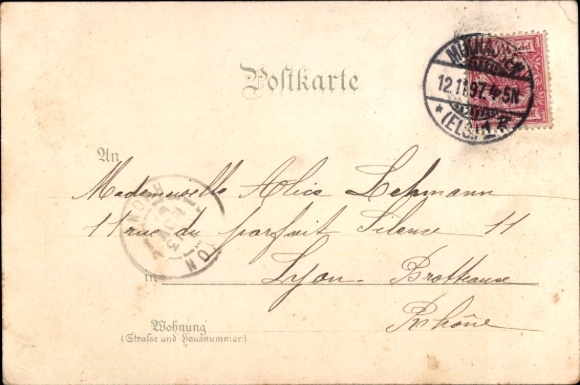 Postkarte
MÜLHAUSEN
12.11.97. 4-5N
* (ELS.) 1.
An
Mademoiselle Alice Lehmann
11 rue du parfait Silence 11
in Lyon-Brotteaux
Rhône
Wohnung
(Straße und Hausnummer)
LYON
RHONE